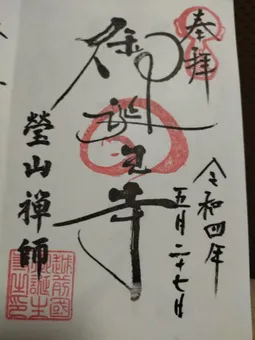 奉拝
令和四年
五月二十七日
御誕生寺
瑩山禪師
越前國
御誕生
寺之印